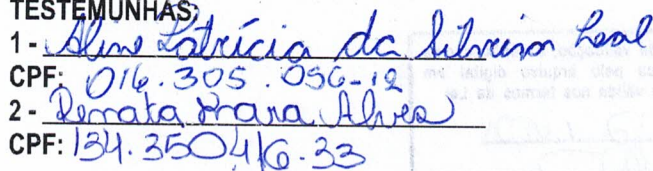 TESTEMUNHAS:
1 - Aline Patrícia da Silveira Leal
CPF: 016.305.056-12
2 - Renata Mara Alves
CPF: 134.350416-33